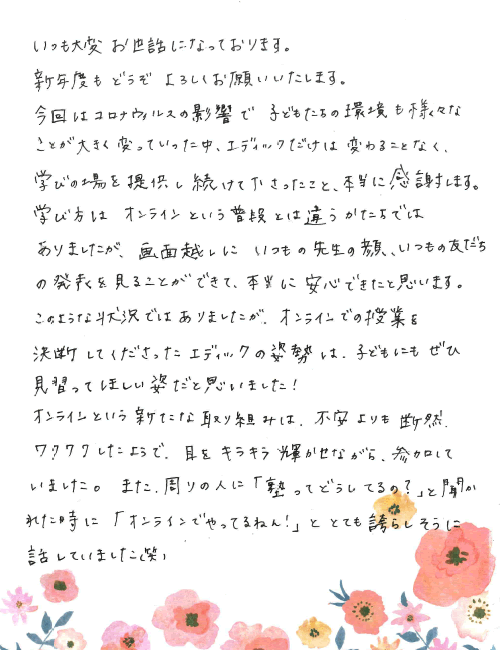 いつも大変お世話になっております。
新年度もどうぞよろしくお願いいたします。
今回はコロナウィルスの影響で子どもたちの環境も様々な
ことが大きく変っていった中、エディックだけは変わることなく、
学びの場を提供し続けて下さったこと、本当に感謝します。
学び方はオンラインという普段とは違うかたちでは
ありましたが、画面越しにいつもの先生の顔、いつもの友だち
の発表を見ることができて、本当に安心できたと思います。
このような状況ではありましたが、オンラインでの授業を
決断してくださったエディックの姿勢は、子どもにもぜひ
見習ってほしい姿だと思いました!
オンラインという新たな取り組みは、不安よりも断然、
ワクワクしたようで、目をキラキラ輝かせながら、参加して
いました。また、周りの人に「塾ってどうしてるの?」と聞か
れた時に「オンラインでやってるねん!」ととても誇らしそうに
話していました(笑)